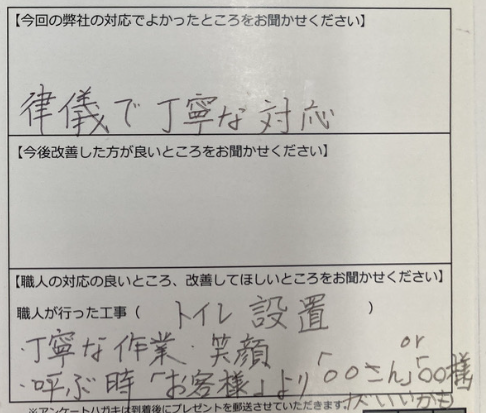 【今回の弊社の対応でよかったところをお聞かせください】
律儀で丁寧な対応
【今後改善した方が良いところをお聞かせください】
【職人の対応の良いところ、改善してほしいところをお聞かせください】
職人が行った工事（ トイレ設置 ）
・丁寧な作業・笑顔
・呼ぶ時「お客様」より「○○さん」or「○○様」
がいいかも
※アンケートハガキは到着後にプレゼントを郵送させていただきます。